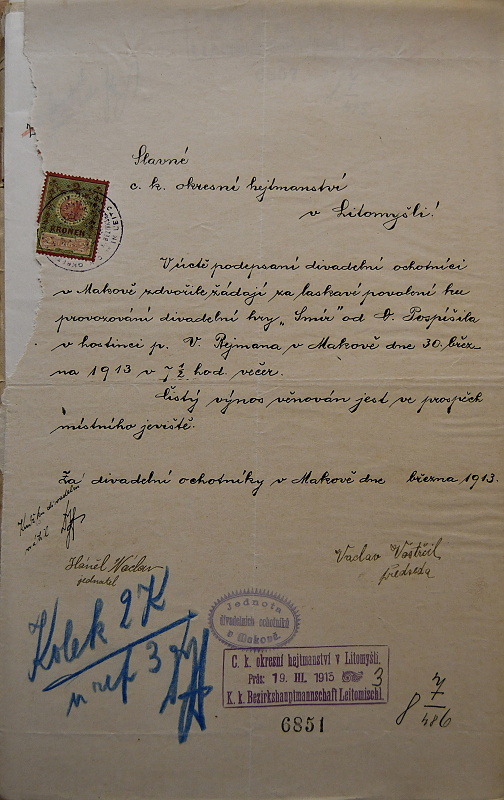 Slavné
c. k. okresní hejtmanství
v Litomyšli!
KRONEN
V úctě podepsaní divadelní ochotníci
v Makově zdvořile žádají za laskavé povolení ku
provozování divadelní hry „Smír" od A. Pospíšila
v hostinci p. V. Rejmana v Makově dne 30. břez-
na 1913 v 7 1/2 hod. večer.
Čistý výnos věnován jest ve prospěch
místního jeviště.
Za divadelní ochotníky v Makově dne března 1913.
divadelní
Václav
jednatel
Vaclav Vostřčil
předseda
Kolek 2 K
u ref 3
Jednota
divadelních ochotníků
v Makově.
C. k. okresní hejtmanství v Litomyšli.
Präs: 19. III. 1913 3
K. k. Bezirkshauptmannschaft Leitomischl.
6851
8 7/486